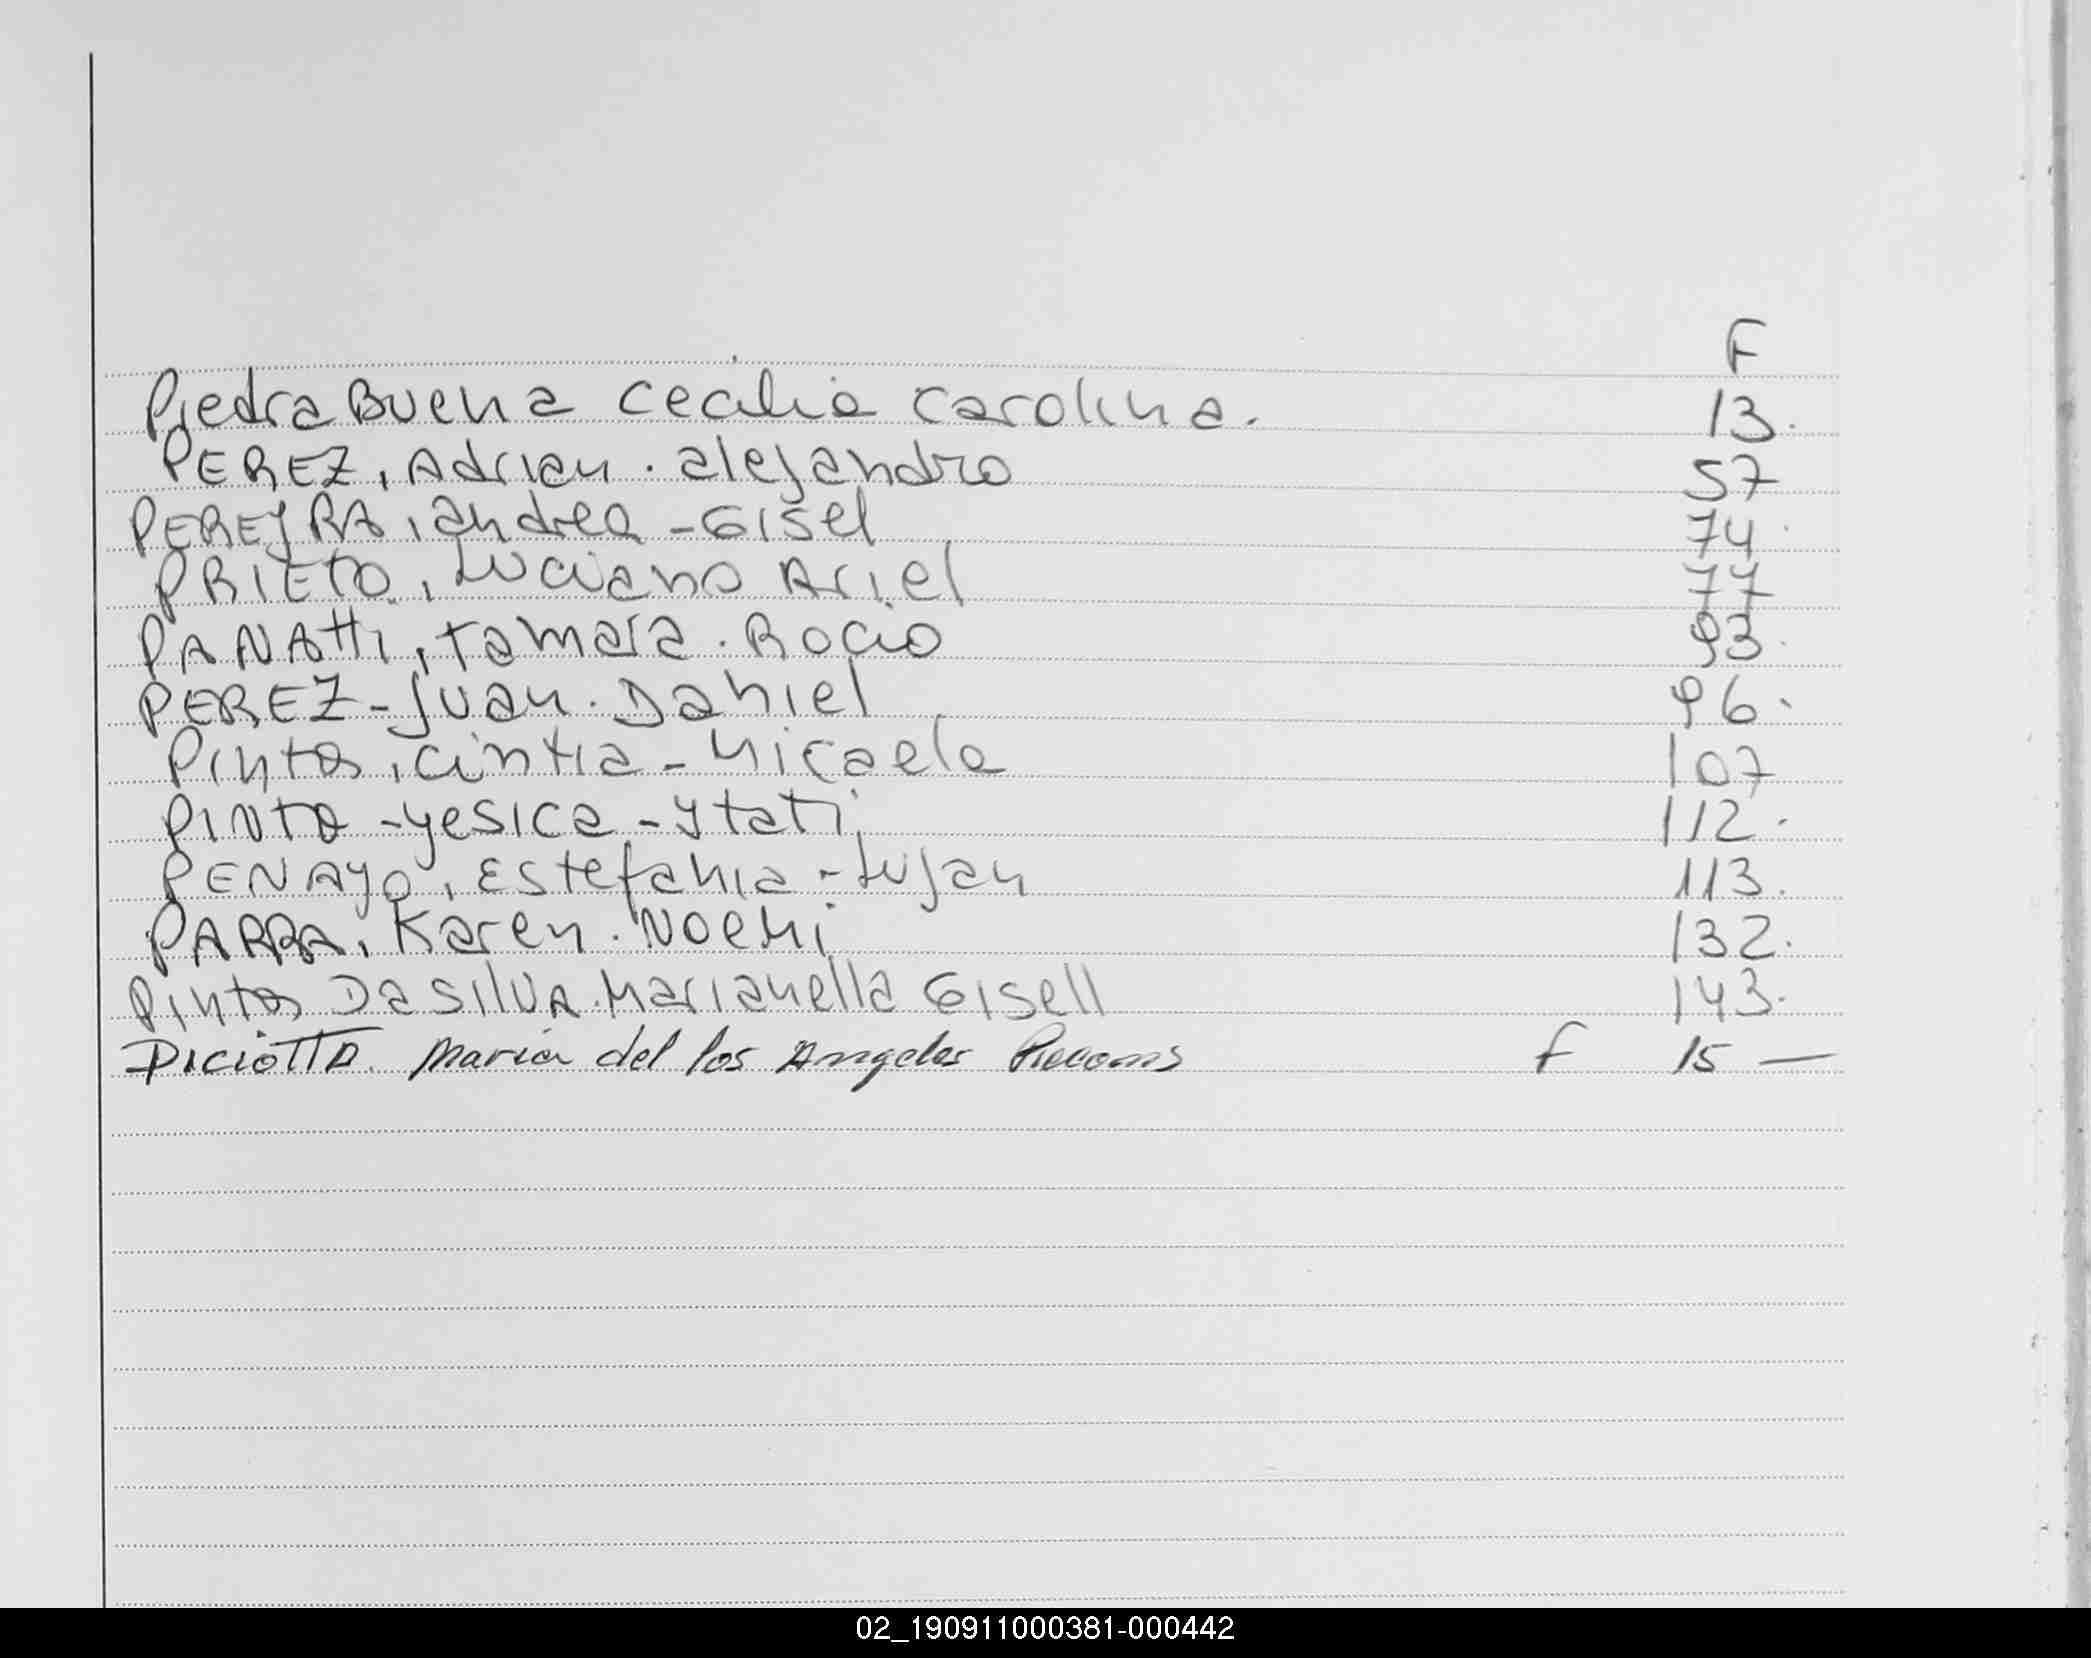 F
PiedraBuena Cecilia Carolina. 13.
PEREZ, Adrian. alejandro 57
PEREYRA, andrea - Gisel 74.
PRIETO, Luciano Ariel 77
PANAtti, tamara. Rocio 93.
PEREZ - Juan. Daniel 96.
Pintos, Cintia - Micaela 107
PINTO - yesica - Ytati 112.
PENAYO, Estefania - Lujan 113.
PARRA, Karen. Noemi 132.
Pintos Da SilVA. Marianella Gisell 143.
PICIOTTO Maria del los Angeles F 15 —
02_190911000381-000442